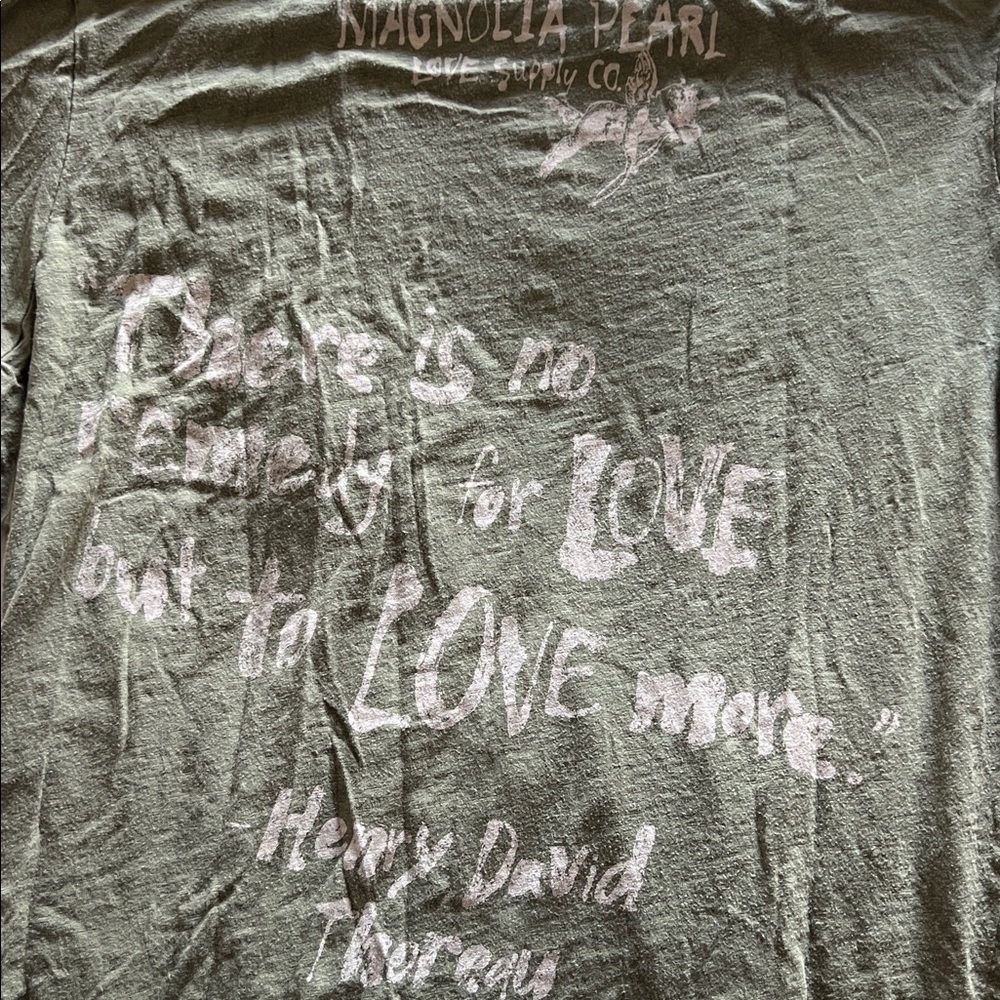 MAGNOLIA PEARL
LOVE Supply CO.
"There is no
rEmedy for LOVE
but to LOVE more."
-Henry David
Thoreau